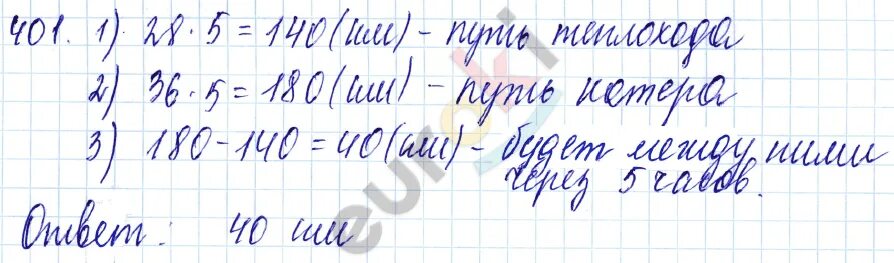 401. 1) 28·5=140(км) - путь теплохода
2) 36·5=180(км) - путь катера
3) 180-140=40(км) - будет между ними
через 5 часов.
Ответ: 40 км
euroki